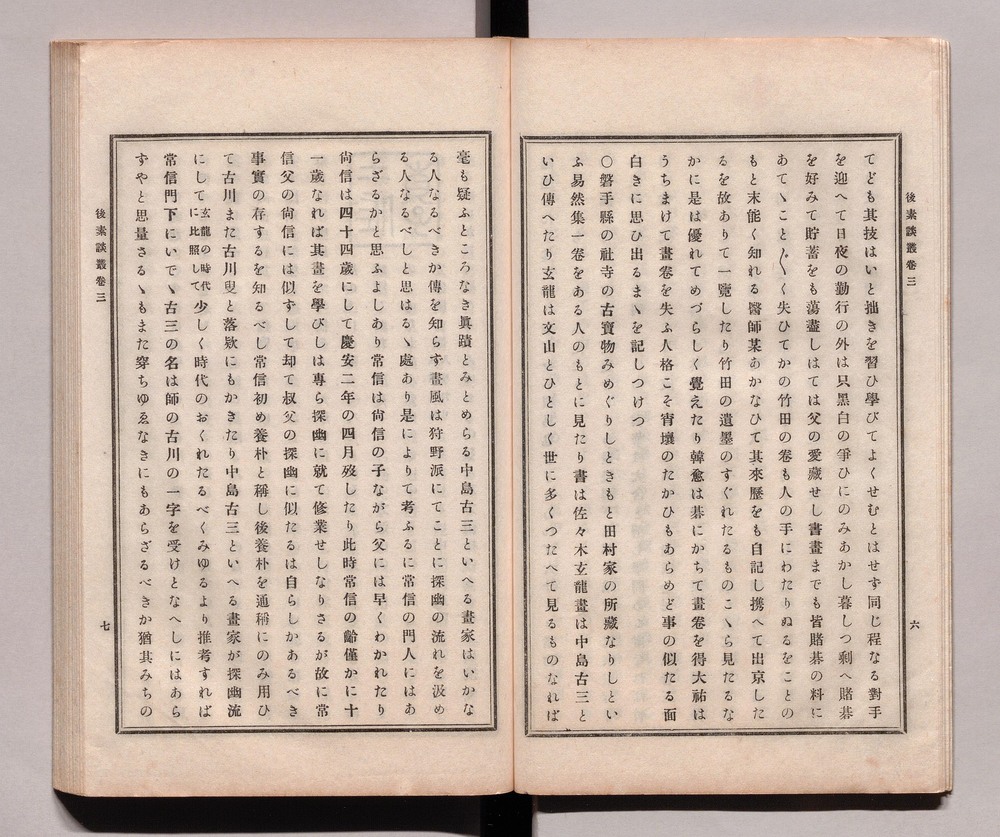 後素談叢卷三
六
てども其技はいと拙きを習ひ學びてよくせむとはせず同じ程なる對手
を迎へて日夜の勤行の外は只黑白の爭ひにのみあかし暮しつ剩へ賭碁
を好みて貯蓄をも蕩盡しはては父の愛藏せし書畫までも皆賭碁の料に
あてゝこと〴〵く失ひてかの竹田の卷も人の手にわたりぬるをことの
もと末能く知れる醫師某あかなひて其來歷をも自記し携へて出京した
るを故ありて一覽したり竹田の遺墨のすぐれたるものこゝら見たるな
かに是は優れてめづらしく覺えたり韓愈は碁にかちて畫卷を得大祐は
うちまけて畫卷を失ふ人格こそ霄壤のたかひもあらめど事の似たる面
白きに思ひ出るまゝを記しつけつ
○磐手縣の社寺の古寶物みめぐりしときもと田村家の所藏なりしとい
ふ易然集一卷をある人のもとに見たり書は佐々木玄龍畫は中島古三と
いひ傳へたり玄龍は文山とひとしく世に多くつたへて見るものなれば
毫も疑ふところなき眞蹟とみとめらる中島古三といへる畫家はいかな
る人なるべきか傳を知らす畫風は狩野派にてことに探幽の流れを汲め
る人なるべしと思はるゝ處あり是によりて考ふるに常信の門人にはあ
らざるかと思ふよしあり常信は尙信の子ながら父には早くわかれたり
尙信は四十四歲にして慶安二年の四月歿したり此時常信の齡僅かに十
一歲なれば其畫を學びしは專ら探幽に就て修業せしなりさるが故に常
信父の尙信には似ずして却て叔父の探幽に似たるは自らしかあるべき
事實の存するを知るべし常信初め養朴と稱し後養朴を通稱にのみ用ひ
て古川また古川叟と落欵にもかきたり中島古三といへる畫家が探幽流
にして玄龍の時代に比照して少しく時代のおくれたるべくみゆるより推考すれば
常信門下にいでゝ古三の名は師の古川の一字を受けとなへしにはあら
ずやと思量さるゝもまた穿ちゆゑなきにもあらざるべきか猶其みちの
後素談叢卷三
七